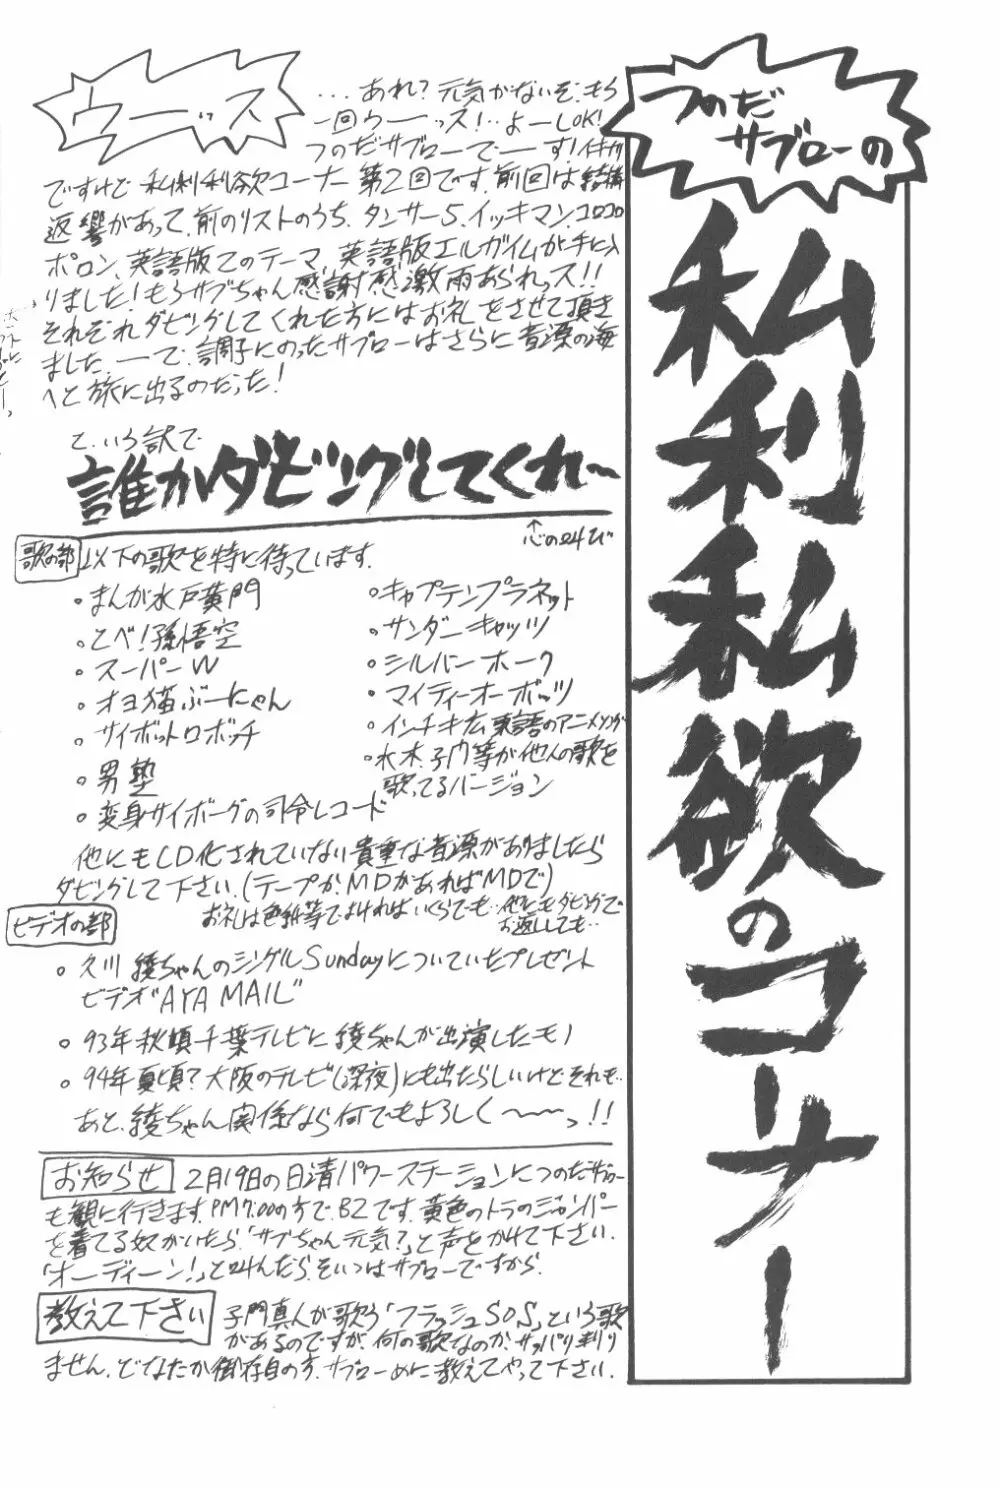 つのだ
サブローの
私利私欲のコーナー
ウーッス
...あれ?元気がないぞ.もう
一回ウーーッス!..よーしOK!
つのだサブローでーーす!
ですけど私利私欲コーナー第2回です.前回は結構
返響があって、前のリストのうち、タンサー5、イッキマン、コロコロ
ポロン、英語版Zのテーマ、英語版エルガイムが手に入
りました!もうサブちゃん感謝感激雨あられっス!!
それぞれダビングしてくれた方にはお礼をさせて頂き
ました.ーーで、調子にのったサブローはさらに音源の海
へと旅に出るのだった!
という訳で
誰かダビングしてくれ〜
↑心の叫び
歌の部 以下の歌を特に待っています.
・まんが水戸黄門
・とべ!孫悟空
・スーパーW
・オヨ猫ぶーにゃん
・サイボットロボッチ
・男塾
・変身サイボーグの司令レコード
・キャプテンプラネット
・サンダーキャッツ
・シルバーホーク
・マイティーオーボッツ
・インチキ広東語のアニメソング
・水木、子門等が他人の歌を
歌ってるバージョン
他にもCD化されていない貴重な音源がありましたら
ダビングして下さい.(テープか、MDがあればMDで)
お礼は色紙等でよければいくらでも..他にもダビングで
お返ししても..
ビデオの部
○久川綾ちゃんのシングルSundayについていたプレゼント
ビデオ"AYA MAIL"
○93年秋頃千葉テレビに綾ちゃんが出演したモノ
○94年夏頃?大阪のテレビ(深夜)にも出たらしいけどそれも..
あと、綾ちゃん関係なら何でもよろしく〜〜〜っ!!
お知らせ 2月19日の日清パワーステーションにつのだサブロー
も観に行きます.PM7:00の方で.B2です.黄色のトラのジャンパー
を着てる奴がいたら「サブちゃん元気?」と声をかけて下さい.
「オーディーン!」と叫んだら、そいつはサブローですから.
教えて下さい 子門真人が歌う「フラッシュSOS」という歌
があるのですが、何の歌なのか、サッパリ判り
ません.どなたか御存自の方、サブローめに教えてやって下さい.